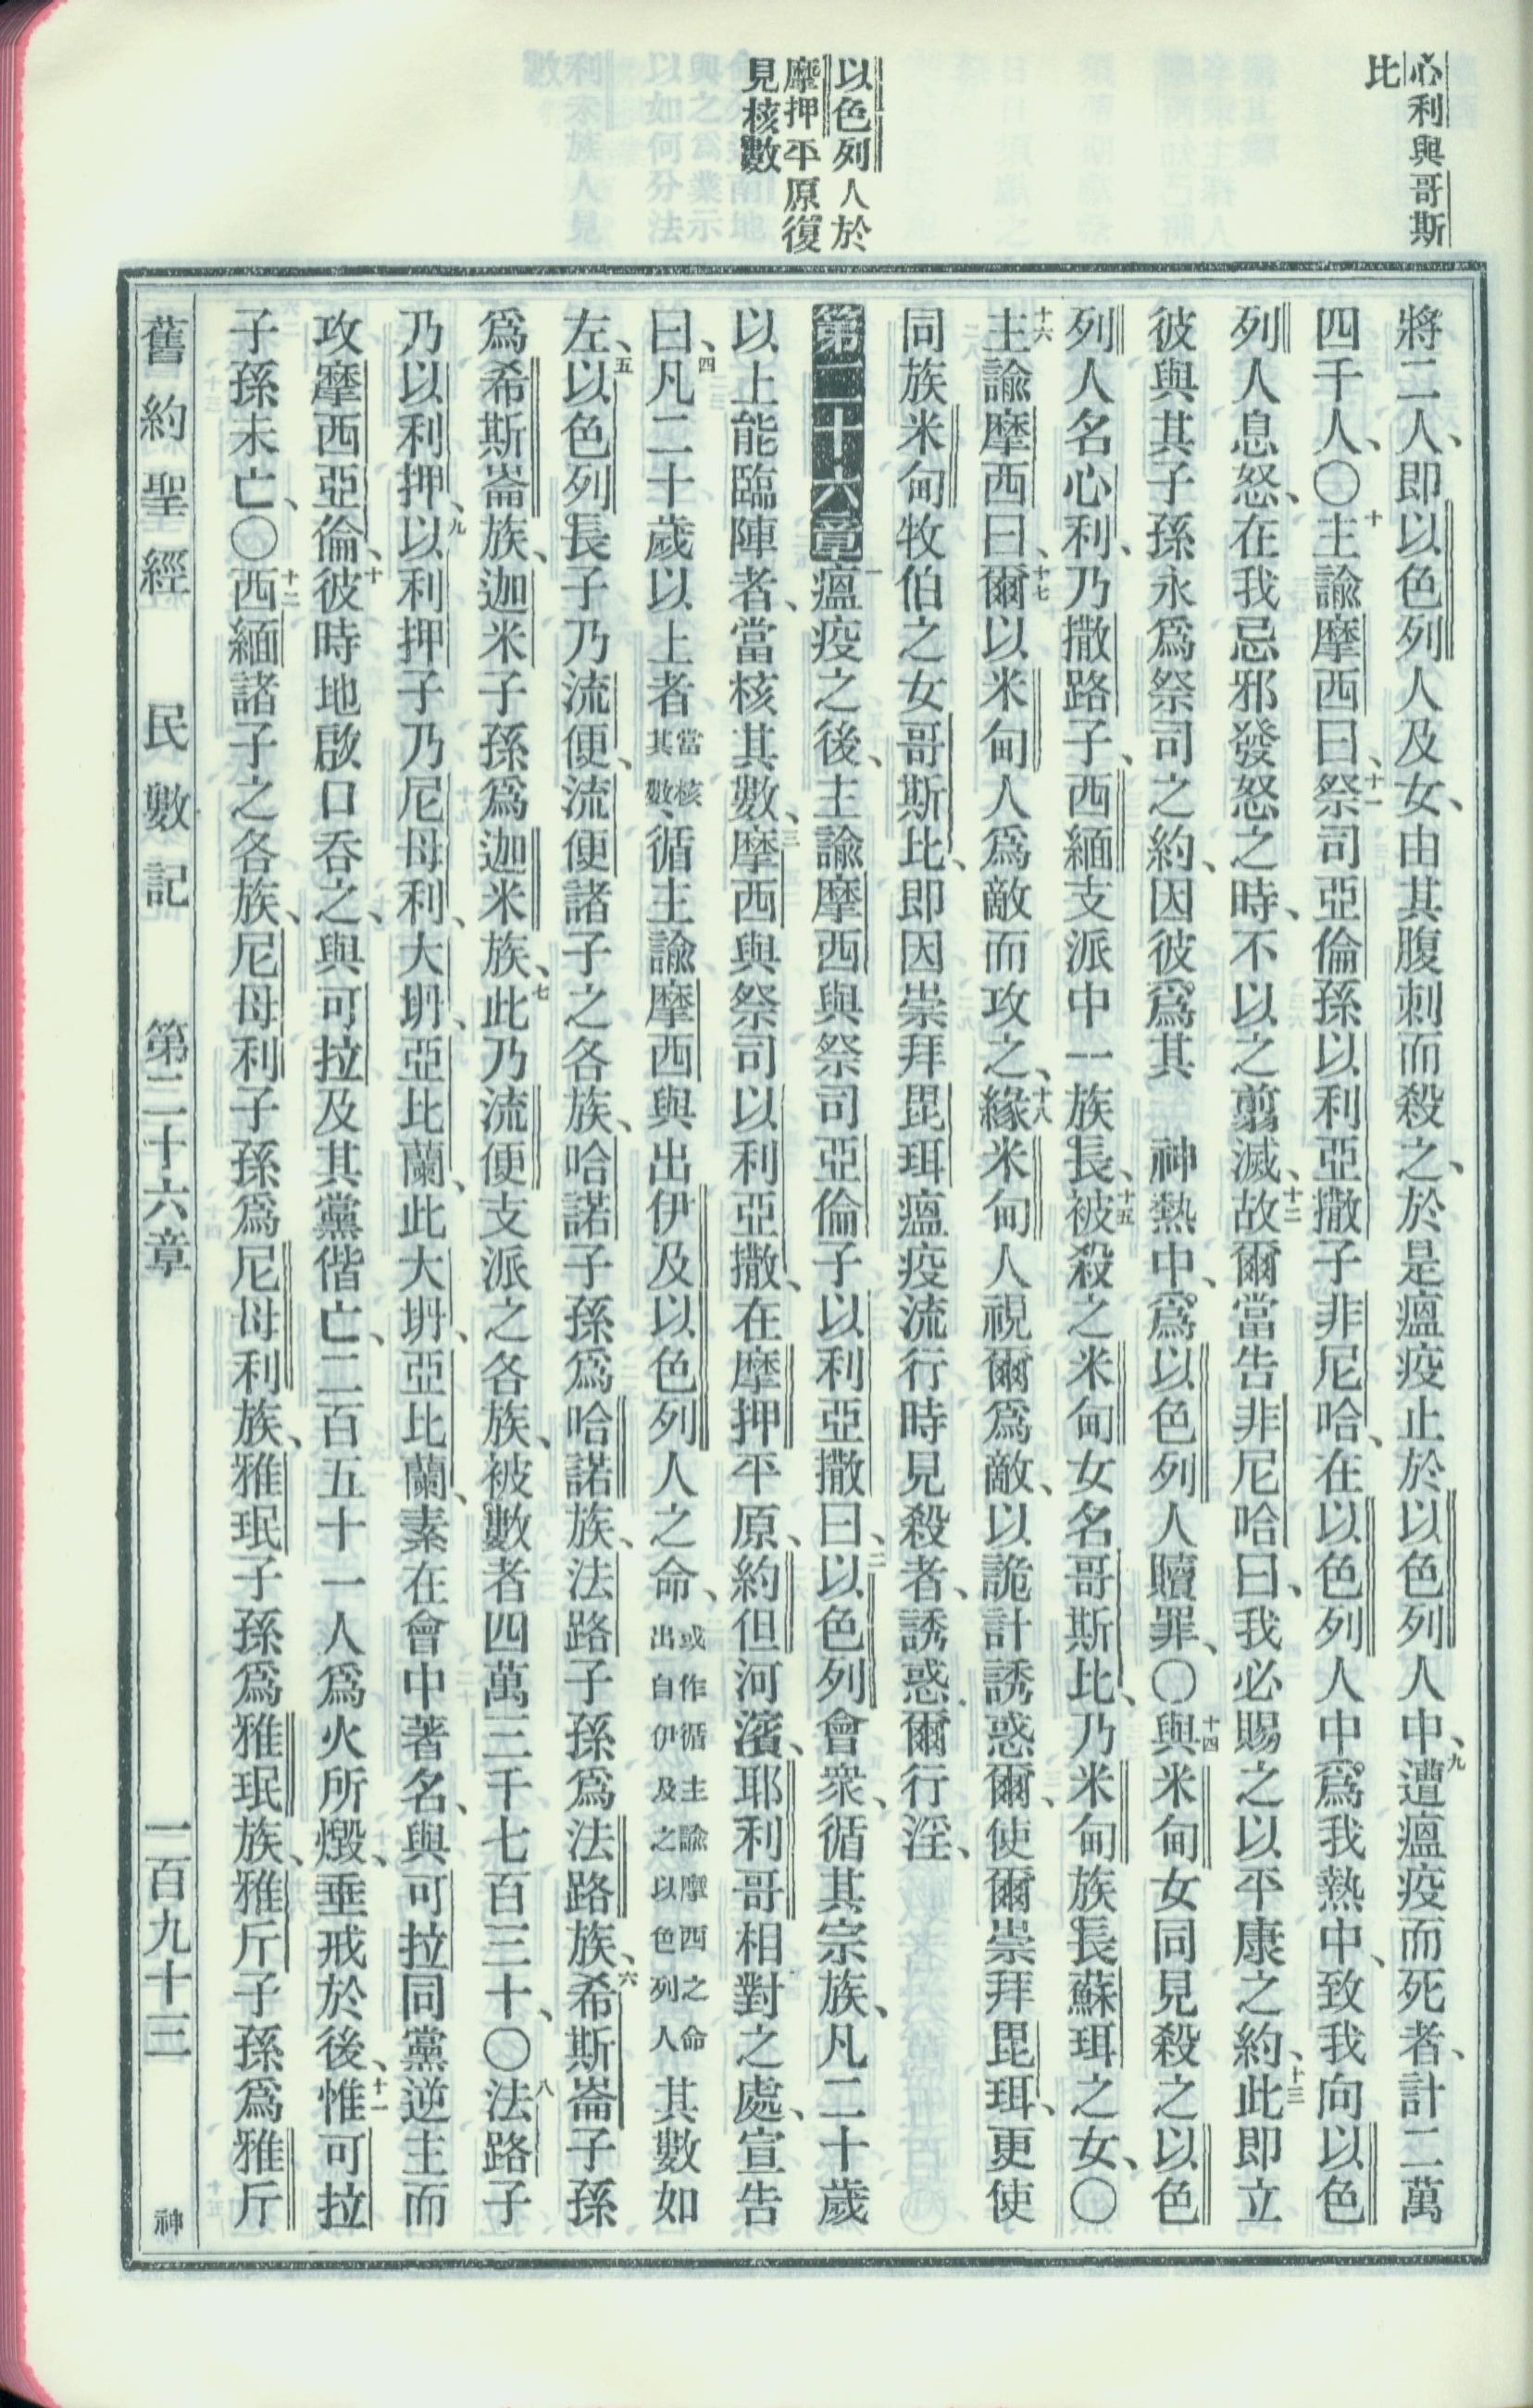 心利與哥斯
比
以色列人於
摩押平原復
見核數
將二人、即以色列人及女、由其腹刺而殺之、於是瘟疫止於以色列人中、九遭瘟疫而死者、計二萬
四千人、〇十主諭摩西曰、十一祭司亞倫孫以利亞撒子非尼哈、在以色列人中、爲我熱中、致我向以色
列人息怒、在我忌邪發怒之時、不以之翦滅、十二故爾當告非尼哈曰、我必賜之以平康之約、十三此即立
彼與其子孫永爲祭司之約、因彼爲其　神熱中、爲以色列人贖罪、〇十四與米甸女同見殺之以色
列人名心利、乃撒路子、西緬支派中一族長、十五被殺之米甸女名哥斯比、乃米甸族長蘇珥之女、〇
十六主諭摩西曰、十七爾以米甸人爲敵而攻之、十八緣米甸人視爾爲敵、以詭計誘惑爾、使爾崇拜毘珥、更使
同族米甸牧伯之女哥斯比、即因崇拜毘珥瘟疫流行時見殺者、誘惑爾行淫、
第二十六章一瘟疫之後、主諭摩西與祭司亞倫子以利亞撒曰、二以色列會衆、循其宗族、凡二十歲
以上能臨陣者、當核其數、三摩西與祭司以利亞撒、在摩押平原、約但河濱、耶利哥相對之處、宣告
曰、四凡二十歲以上者當核其數、循主諭摩西與出伊及以色列人之命、或作循主諭摩西之命出自伊及之以色列人其數如
左、五以色列長子乃流便、流便諸子之各族、哈諾子孫爲哈諾族、法路子孫爲法路族、六希斯崙子孫
爲希斯崙族、迦米子孫爲迦米族、七此乃流便支派之各族、被數者四萬三千七百三十、〇八法路子
乃以利押、九以利押子乃尼母利、大坍、亞比蘭、此大坍、亞比蘭、素在會中著名、與可拉同黨逆主而
攻摩西亞倫、十彼時地啟口吞之、與可拉及其黨偕亡、二百五十一人爲火所燬、垂戒於後、十一惟可拉
子孫未亡、〇十二西緬諸子之各族、尼母利子孫爲尼母利族、雅珉子孫爲雅珉族、雅斤子孫爲雅斤
舊約聖經　民數記　第二十六章　一百九十三　神